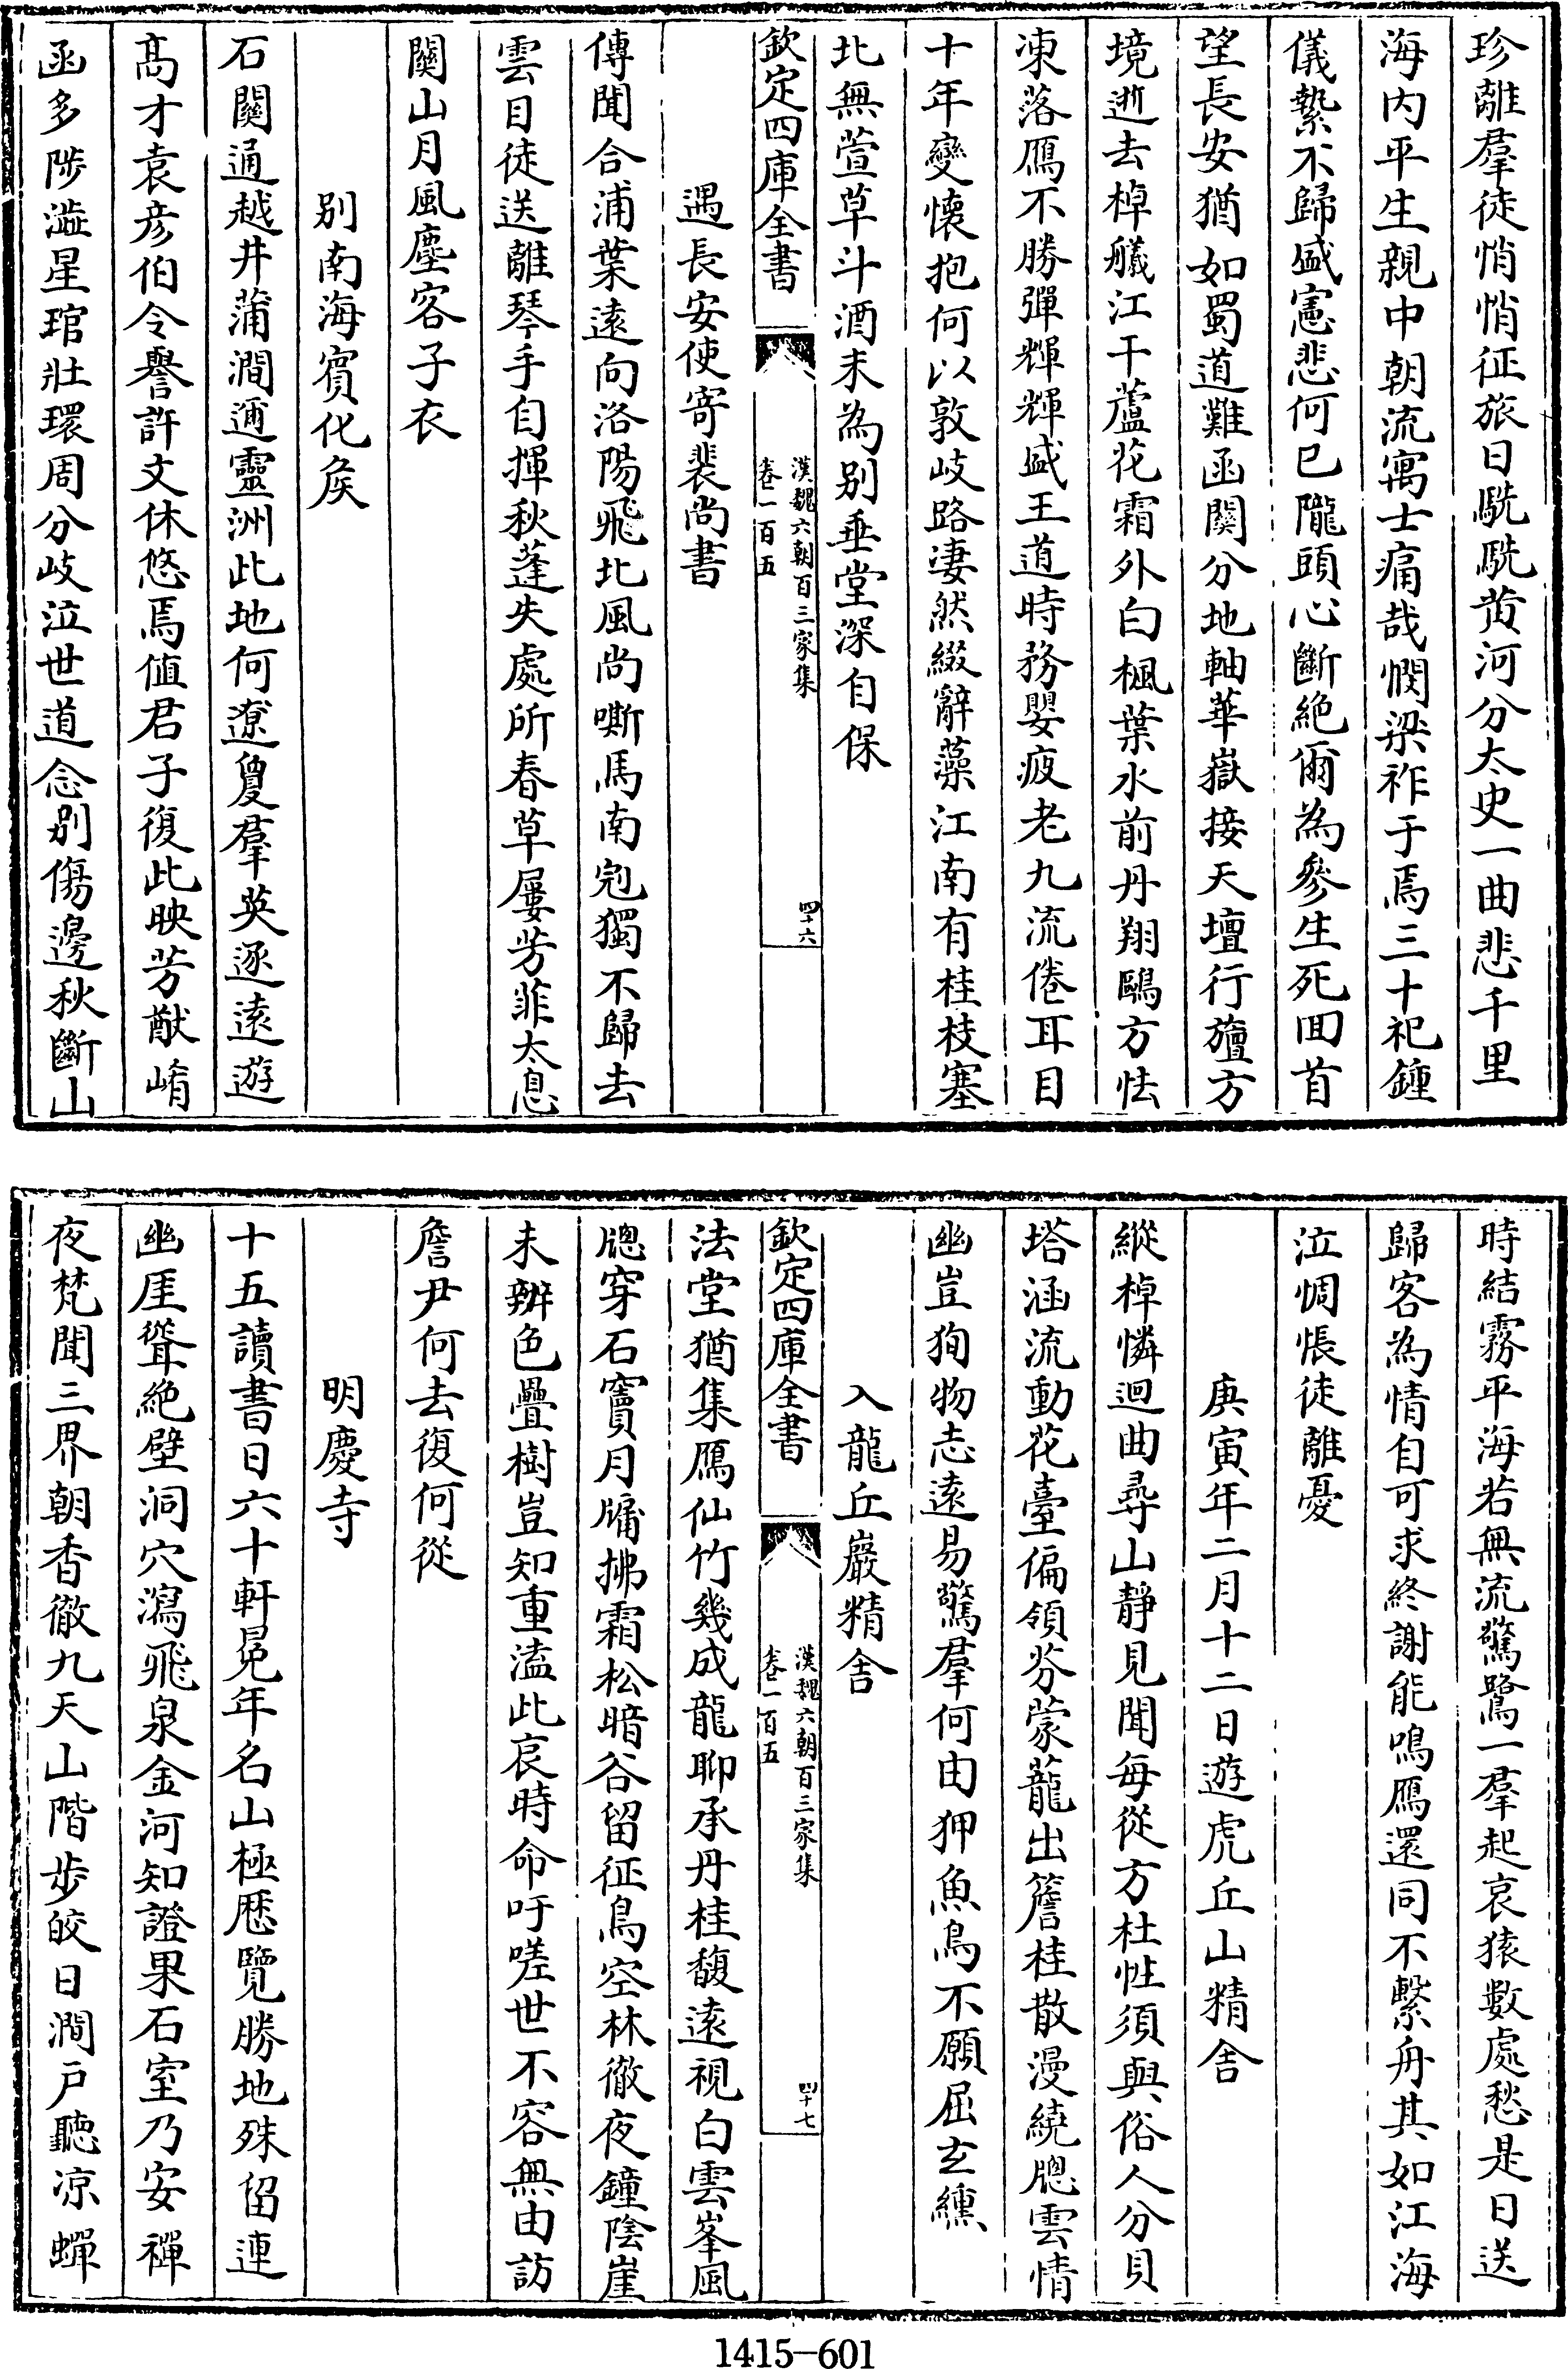 珍離羣徒悄悄征旅日駪駪黃河分太史一曲悲千里
海內平生親中朝流寓士痛哉憫梁祚于焉三十祀鍾
儀縶不歸盛憲悲何已隴頭心斷絕爾為參生死囬首
望長安猶如蜀道難函關分地軸華嶽接天壇行旜方
境逝去棹艤江干蘆花霜外白楓葉水前丹翔鷗方怯
凍落鴈不勝彈輝輝盛王道時務嬰疲老九流倦耳目
十年變懷抱何以敦岐路凄然綴辭藻江南有桂枝塞
北無萱草斗酒未為别垂堂深自保
欽定四庫全書
漢魏六朝百三家集
卷一百五
四十六
遇長安使寄裴尚書
傳聞合浦葉遠向洛陽飛北風尚嘶馬南冠獨不歸去
雲目徒送離琴手自揮秋蓬失處所春草屢芳菲太息
關山月風塵客子衣
別南海賓化侯
石關通越井蒲澗邇靈洲此地何遼夐羣英逐遠遊
髙才袁彥伯令譽許文休悠焉值君子復此映芳猷崤
函多陟澁星琯壯環周分岐泣世道念別傷邊秋斷山
時結霧平海若無流驚鷺一羣起哀猿數處愁是日送
歸客為情自可求終謝能鳴鴈還同不繫舟其如江海
泣惆悵徒離憂
庚寅年二月十二日遊虎丘山精舍
縱棹憐迴曲尋山靜見聞每從方杜性須與俗人分貝
塔涵流動花臺偏領芬蒙蘢出簷桂散漫繞牕雲情
幽豈狥物志遠易驚羣何由狎魚鳥不願屈玄纁
入龍丘巖精舍
欽定四庫全書
漢魏六朝百三家集
卷一百五
四十七
法堂猶集鴈仙竹幾成龍聊承丹桂馥遠視白雲峯風
牕穿石竇月牖拂霜松暗谷留征鳥空林徹夜鐘陰崖
未辨色疊樹豈知重溘此哀時命吁嗟世不容無由訪
詹尹何去復何從
明慶寺
十五讀書日六十軒冕年名山極歷覽勝地殊留連
幽厓聳絕壁洞穴瀉飛泉金河知證果石室乃安禪
夜梵聞三界朝香徹九天山階步皎日澗戶聽凉蟬
1415-601